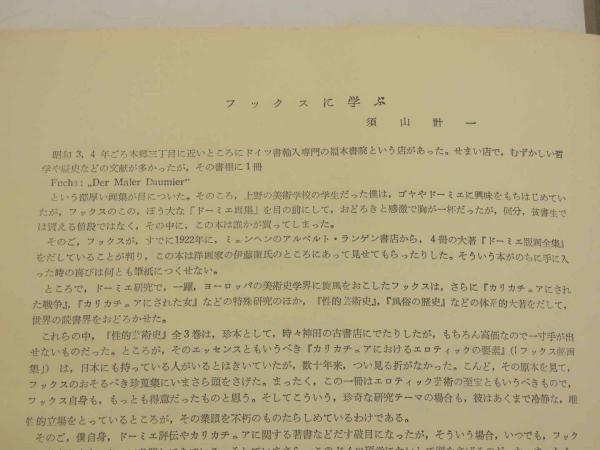 フックスに学ぶ
須山計一
昭和3，4年ごろ本郷三丁目に近いところにドイツ書輸入専門の福本書院という店があった。せまい店で，むずかしい哲
学や歴史などの文献が多かったが，その書棚に1冊
Fuchs: „Der Maler Daumier“
という部厚い画集が目についた。そのころ，上野の美術学校の学生だった僕は，ゴヤやドーミエに興味をもちはじめてい
たが，フックスのこの，ぼう大な「ドーミエ画集」を目の前にして，おどろきと感激で胸が一杯だったが，何分，貧書生で
は買える値段ではなく，その中に，この本は誰かが買ってしまった。
そのご，フックスが，すでに1922年に，ミュンヘンのアルベルト・ランゲン書店から，4冊の大著『ドーミエ版画全集』
をだしていることが判り，この本は洋画家の伊藤廉氏のところにあって見せてもらったりした。そういう本がのちに手に入
った時の喜びは何とも筆紙につくせない。
ところで，ドーミエ研究で，一躍，ヨーロッパの美術史学界に旋風をおこしたフックスは，さらに『カリカチュアにされ
た戦争』，『カリカチュアにされた女』などの特殊研究のほか，『性的芸術史』，『風俗の歴史』などの体系的大著をだして，
世界の読書界をおどろかせた。
これらの中，『性的芸術史』全3巻は，珍本として，時々神田の古書店にでたりしたが，もちろん高価なので一寸手が出
せないものだった。ところが，そのエッセンスともいうべき『カリカチュアにおけるエロティックの要素』(『フックス版画
集』) は，日本にも持っている人がいるとはきいていたが，数十年来，つい見る折がなかった。こんど，その原本を見て，
フックスのおそるべき珍蒐集にいまさら頭をさげた。まったく，この一冊はエロティック芸術の至宝ともいうべきもので，
フックス自身も，もっとも得意だったものと思う。そしてこういう，珍奇な研究テーマの場合も，彼はあくまで冷静な，唯
的立場をとっているところが，その業績を不朽のものたらしめているわけである。
そのご，僕自身，ドーミエ評伝やカリカチュアに関する著書などだす破目になったが，そういう場合，いつでも，フック